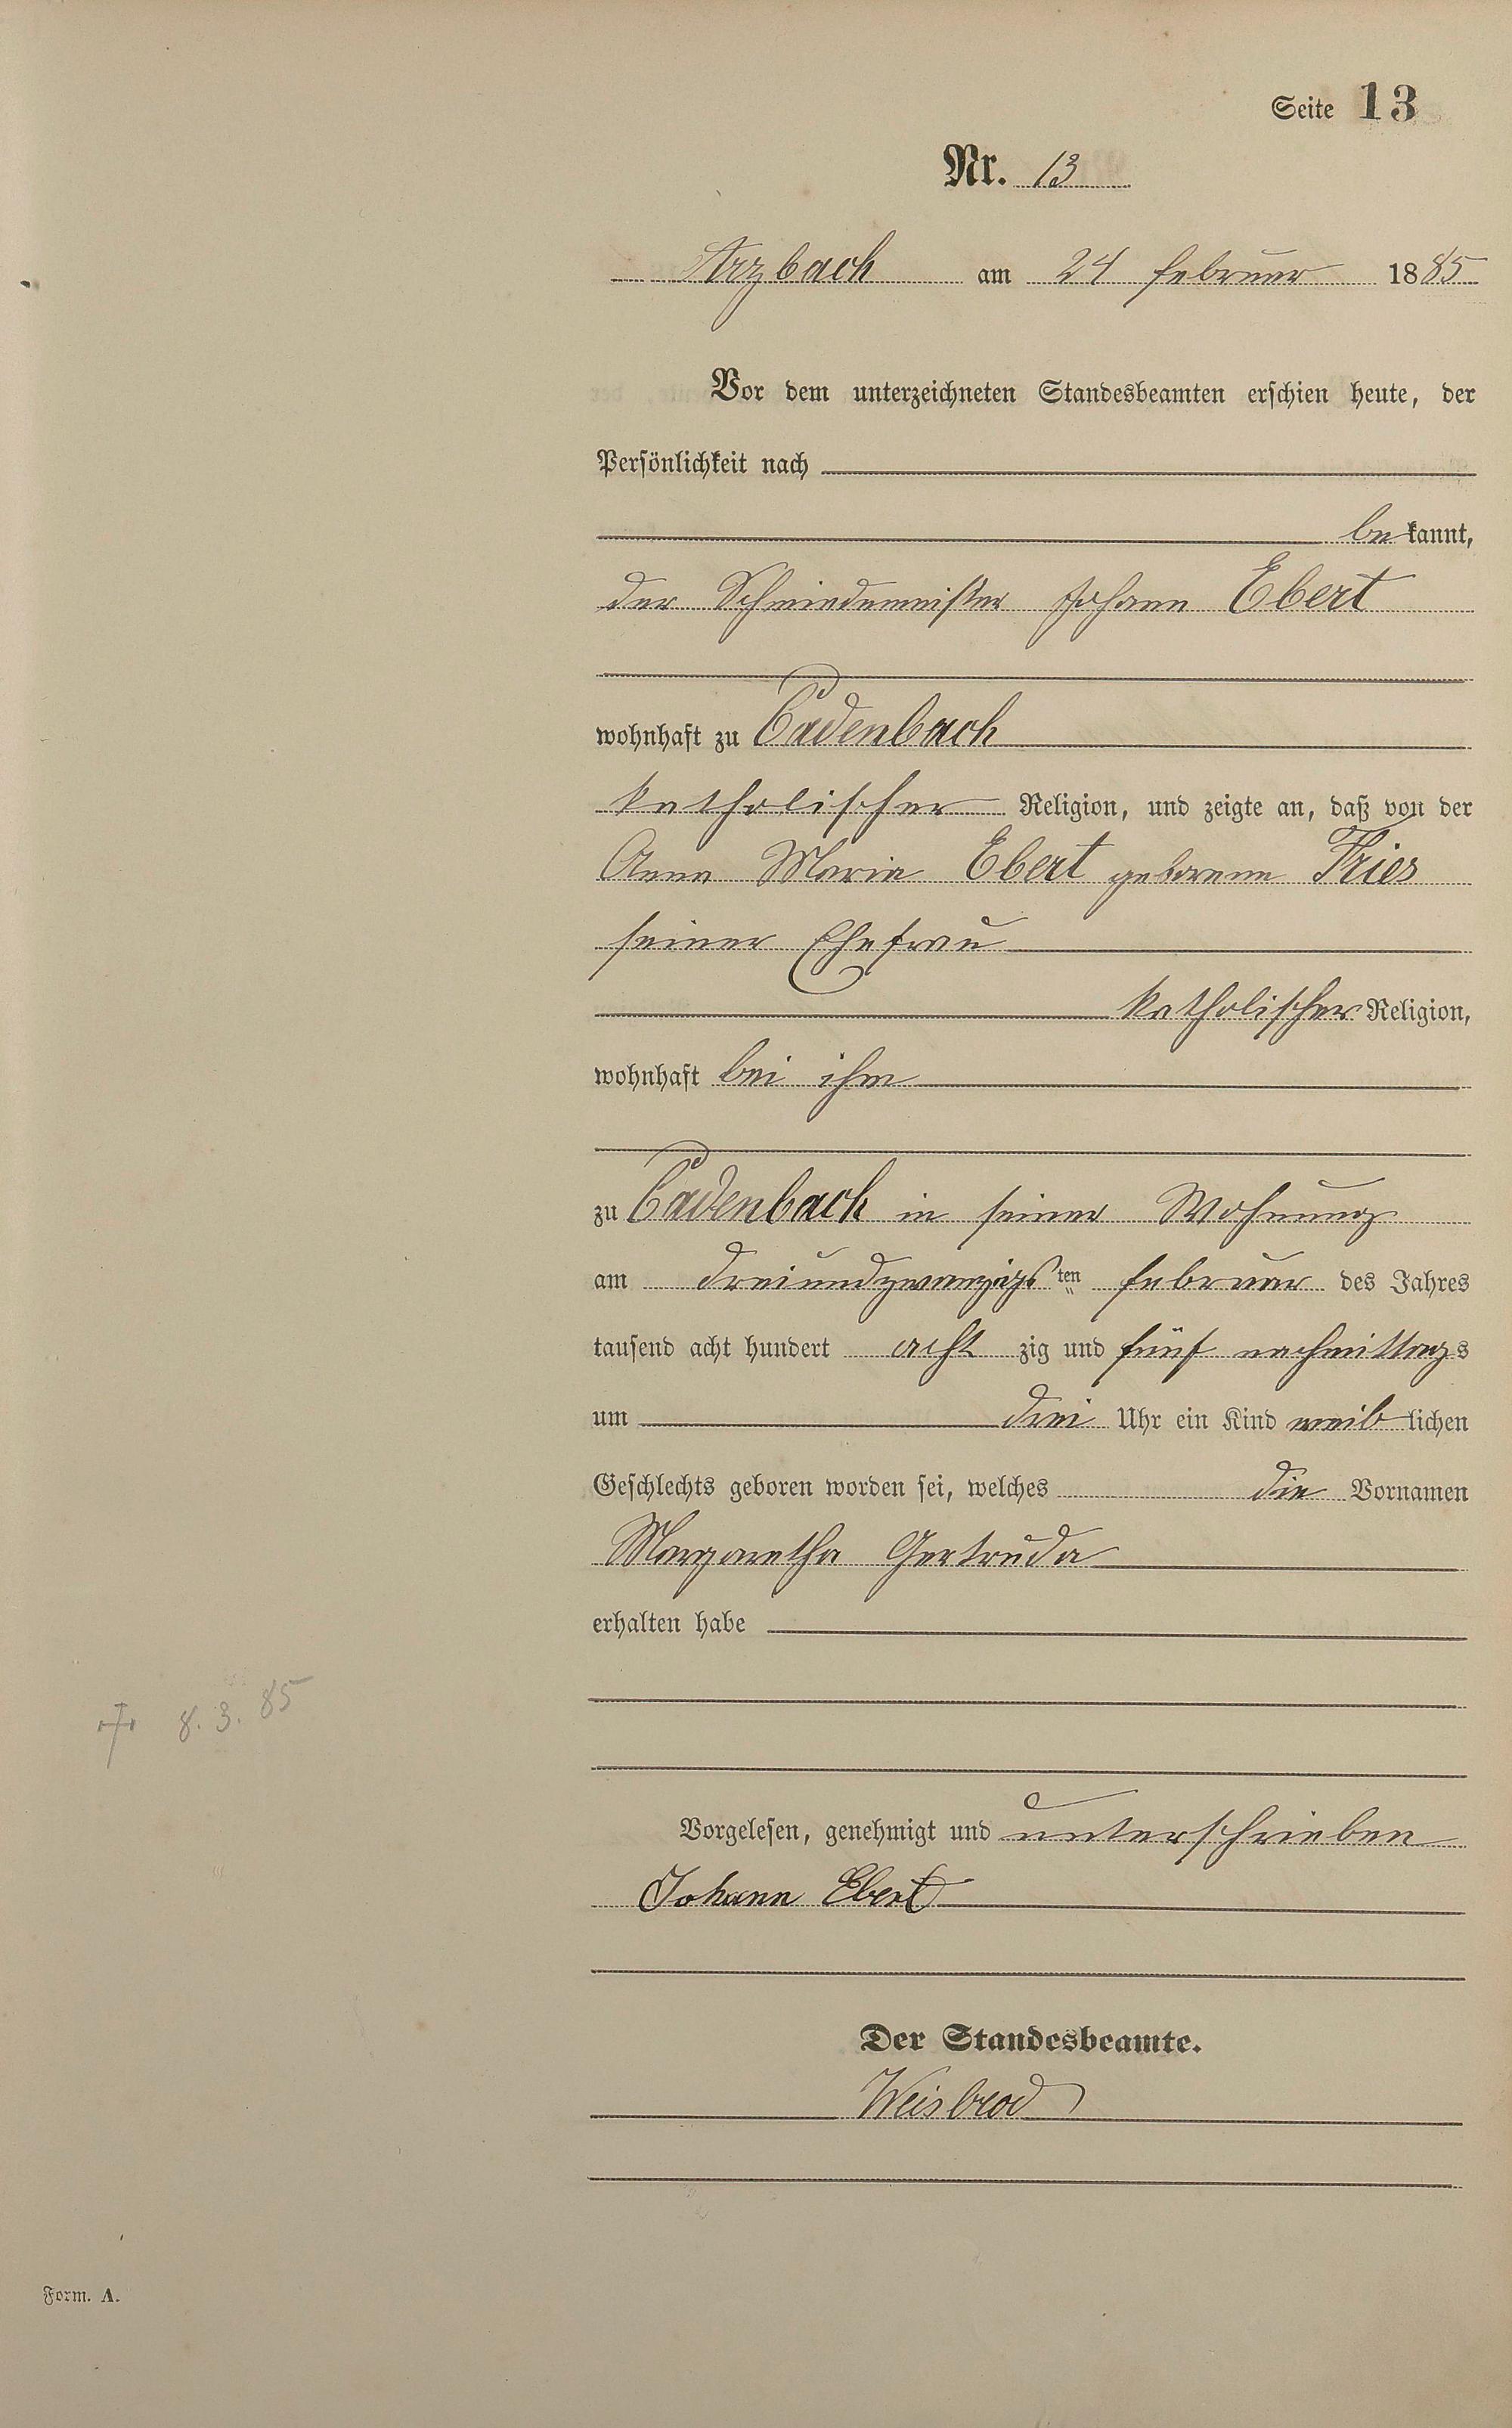 Seite 13
Nr. 13
Arzbach am 24 Februar 1885
Vor dem unterzeichneten Standesbeamten erschien heute, der
Persönlichkeit nach
bekannt,
der Schmiedemeister Johann Ebert
wohnhaft zu Cadenbach
katholischer Religion, und zeigte an, daß von der
Anna Maria Ebert geborene Fries
seiner Ehefrau
katholischer Religion,
wohnhaft bei ihm
zu Cadenbach in seiner Wohnung
am dreiundzwanzigsten Februar des Jahres
tausend acht hundert acht zig und fünf nachmittags
um drei Uhr ein Kind weiblichen
Geschlechts geboren worden sei, welches die Vornamen
Margaretha Gertruda
erhalten habe
† 8. 3. 85
Vorgelesen, genehmigt und unterschrieben
Johann Ebert
Der Standesbeamte.
Weisbrod
Form. A.